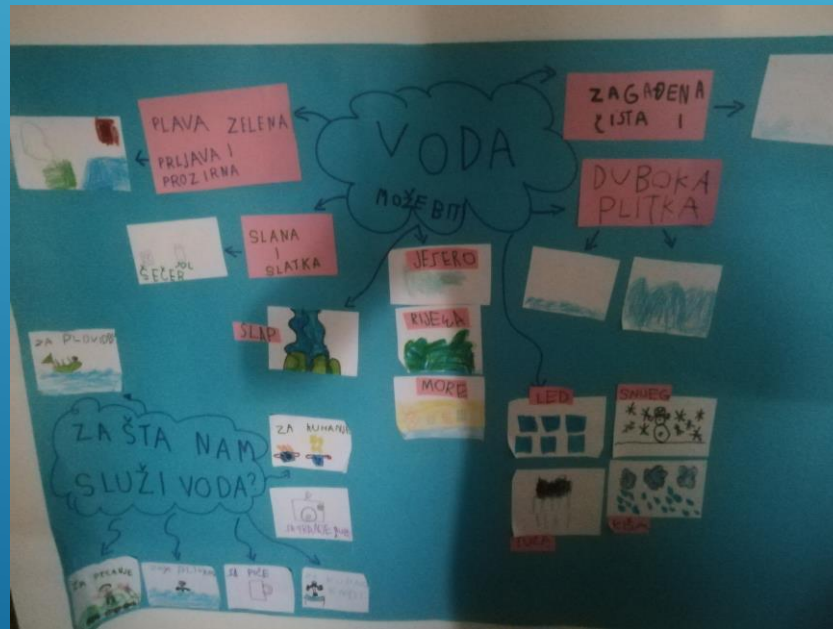 VODA
MOŽE BITI
PLAVA ZELENA
PRLJAVA I
PROZIRNA
ZAGAĐENA
ČISTA I
DUBOKA
PLITKA
SLANA
I
SLATKA
ŠEĆER
SOL
JEZERO
RIJEKA
MORE
SLAP
LED
SNIJEG
TUČA
KIŠA
ZA PLOVIDBU
ZA ŠTA NAM
SLUŽI VODA?
ZA KUHANJE
ZA PRANJE
ZA PECANJE
ZA PIĆE